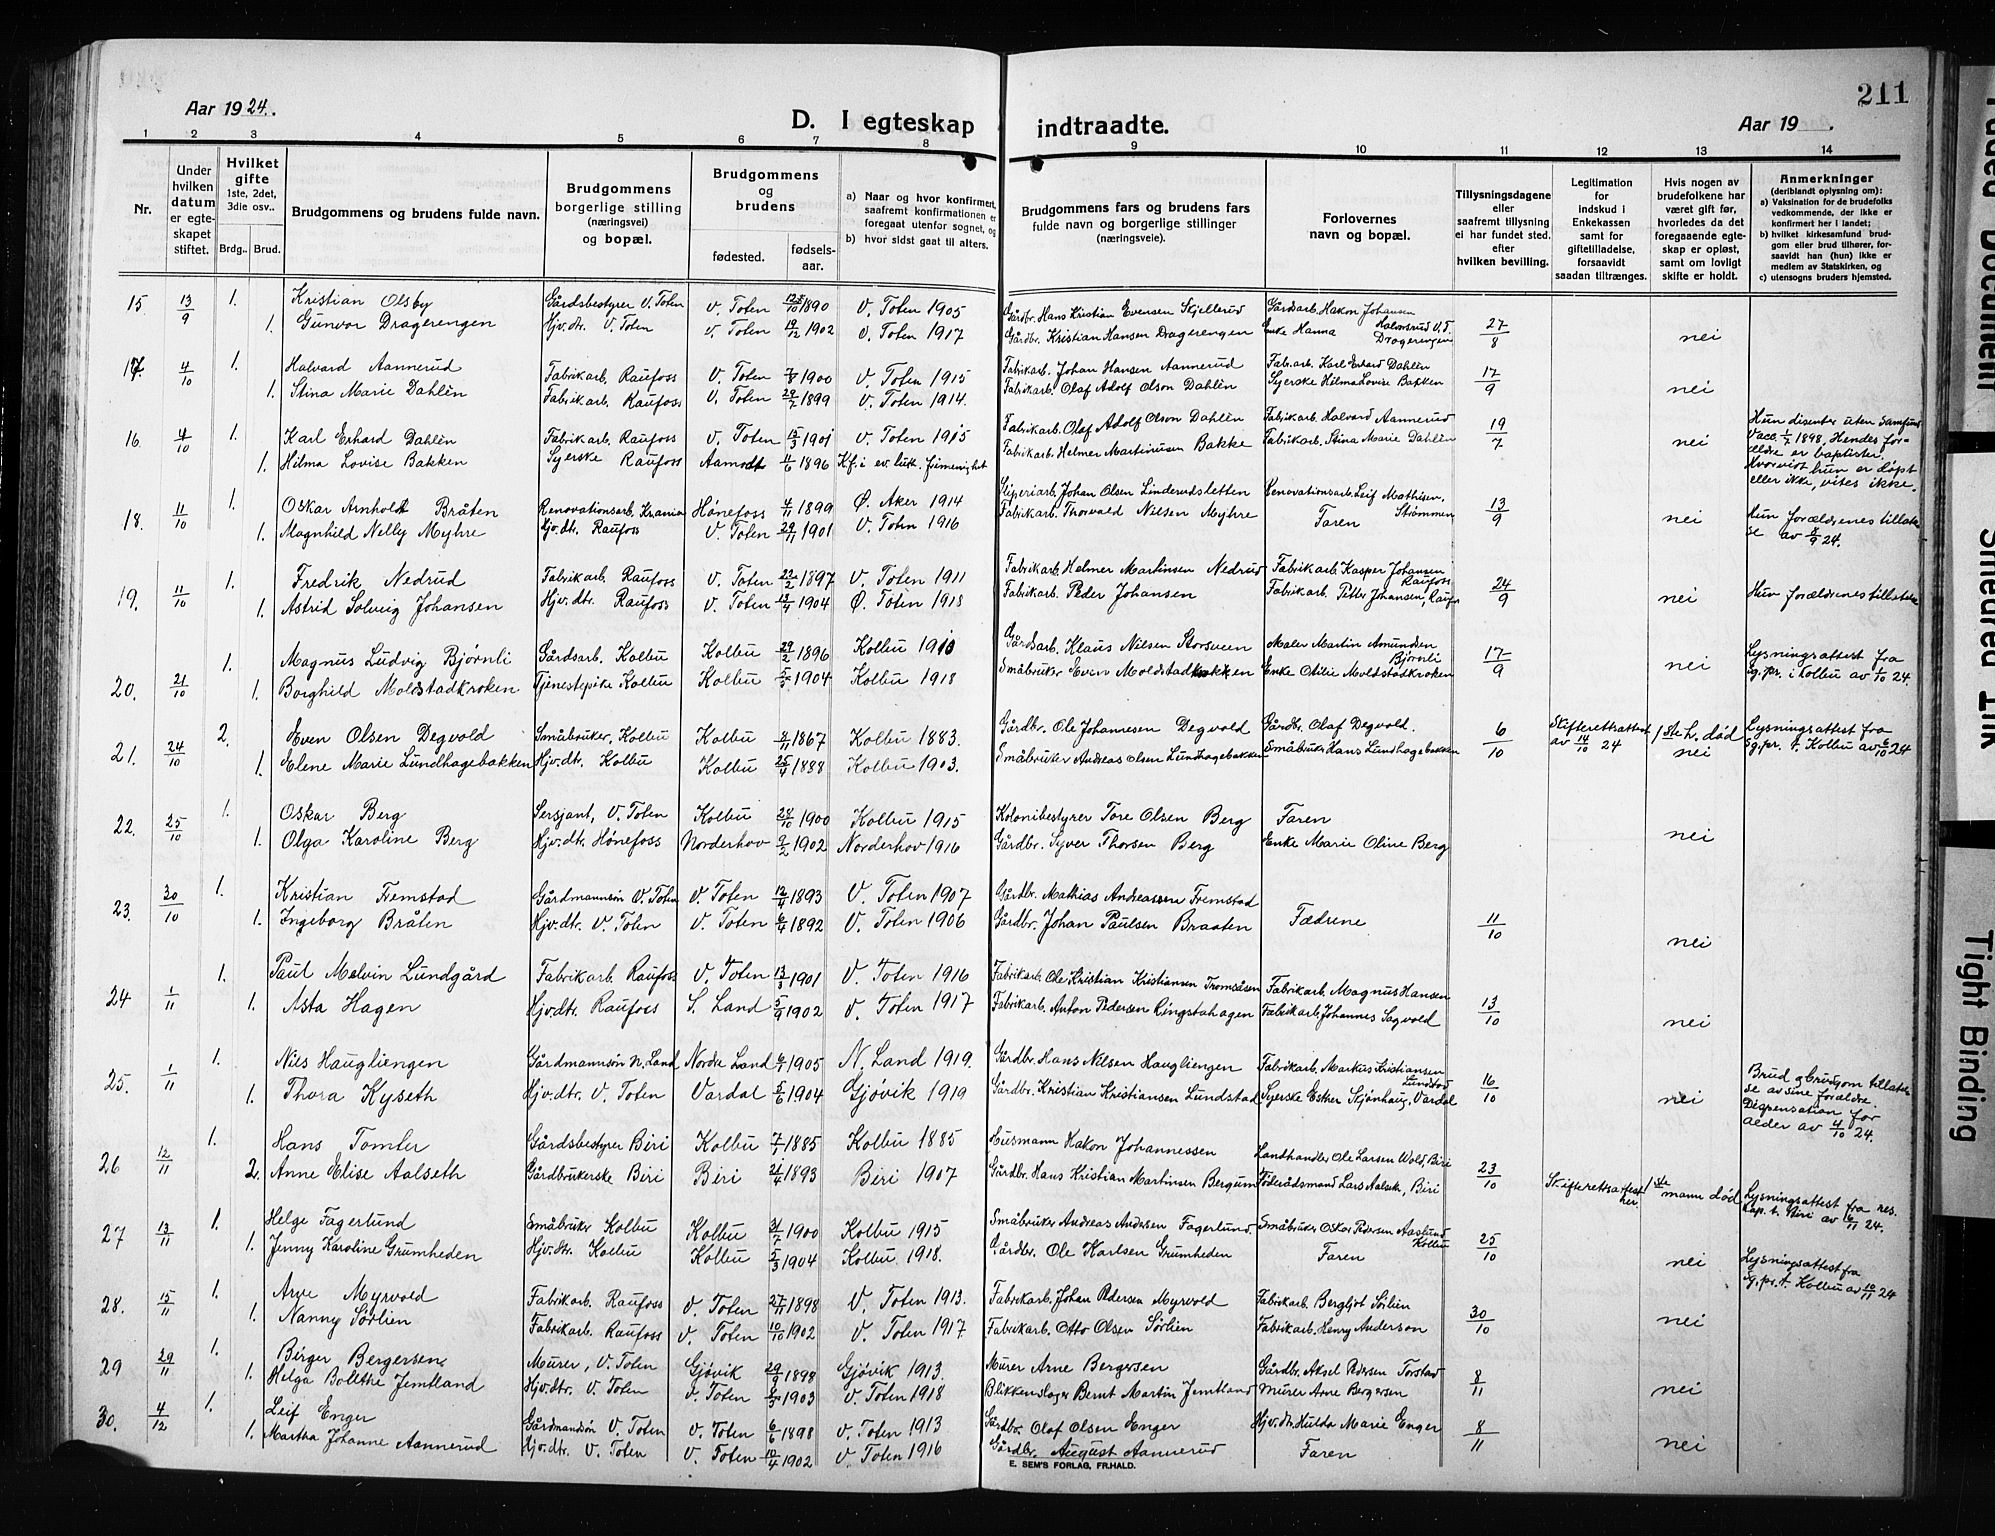 211
Aar 1924.
D. I egteskap indtraadte.
Aar 19 .
1 2 3 4 5 6 7 8 9 10 11 12 13 14
Nr.
Under hvilken datum er egteskapet stiftet.
Hvilket gifte 1ste, 2det, 3die osv.. Brdg.. Brud.
Brudgommens og brudens fulde navn.
Brudgommens borgerlige stilling (næringsvei) og bopæl.
Brudgommens og brudens fødested. fødselsaar.
a) Naar og hvor konfirmert, saafremt konfirmationen er foregaat utenfor sognet, og
b) hvor sidst gaat til alters.
Brudgommens fars og brudens fars fulde navn og borgerlige stillinger (næringsveie).
Forlovernes navn og bopæl.
Tillysningsdagene eller saafremt tillysning ei har fundet sted. efter hvilken bevilling.
Legitimation for indskud i Enkekassen samt for giftetilladelse, forsaavidt saadan tiltrænges.
Hvis nogen av brudefolkene har været gift før, hvorledes da det foregaaende egteskap er opløst, samt om lovligt skifte er holdt.
Anmerkninger (deriblandt oplysning om):
a) Vaksination for de brudefolks vedkommende, der ikke er konfirmert her i landet;
b) hvilket kirkesamfund brudgom eller brud tilhører, forsaavidt han (hun) ikke er medlem av Statskirken, og
c) utensogns bruders hjemsted.
15 13/9 1. Kristian Olsby Gårdsbestyrer V. Toten V. Toten 1890 V. Toten 1905 Gårdbr. Hans Kristian Evensen Skjellerud Gårdsarb. Hakon Johansen Halmsrud V.T. 27/8 nei
1. Gunvor Dragerengen Hjv.dtr. V. Toten V. Toten 19/12 1902 V. Toten 1917 Gårdbr. Kristian Hansen Dragerengen Enke Hanna Dragerengen
17. 4/10 1. Halvard Aannerud Fabrikarb. Raufoss V. Toten 1900 V. Toten 1915 Fabrikarb. Johan Hansen Aannerud Fabr.arb. Karl Erhard Dahlèn 17/9 nei
1. Stina Marie Dahlèn Fabrikarb. Raufoss V. Toten 1899 V. Toten 1914. Fabrikarb. Olaf Adolf Olson Dahlèn Syerske Hilma Lovise Bakken
16. 4/10 1. Karl Erhard Dahlèn Fabrikarb. Raufoss V. Toten 15/3 1901 V. Toten 1915 Fabrikarb. Olaf Adolf Olson Dahlèn Fabrikarb. Halvard Aannerud 19/7 nei
1. Hilma Lovise Bakken Syerske Raufoss Aamodt 4/6 1896 Kf. i ev. luth. frimenighet Fabrikarb. Helmer Martiniusen Bakke Fabrikarb. Stina Marie Dahlèn
Hun disenter uten samfund Vacc. 1/7 1898, Hendes forældre er baptister. Hvorvidt hun er døpt eller ikke, vites ikke.
18. 11/10 1. Oskar Arnholdt Bråten Renovationsarb. Krania Hønefoss 4/11 1899 Ø. Aker 1914 Sliperiarb. Johan Olsen Linderudsletten Renovationsarb. Leif Mathisen, Strømmen 13/9 nei
1. Magnhild Nelly Myhre Hjv.dtr. Raufoss V. Toten 29/11 1901 V. Toten 1916 Fabrikarb. Thorvald Nilsen Myhre Faren
Hun forældrenes tillatelse av 8/9 24.
19. 11/10 1. Fredrik Nedrud Fabrikarb. Raufoss V. Toten 22/2 1897 V. Toten 1911 Fabrikarb. Helmer Martinsen Nedrud Fabrikarb. Kasper Johansen Raufoss 24/9 nei
1. Astrid Solveig Johansen Hjv.dtr. Raufoss V. Toten 13/4 1904 Ø. Toten 1918 Fabrikarb. Peder Johansen Fabrikarb. Petter Johansen, Raufoss
Hun forældrenes tillatelse
20. 21/10 1. Magnus Ludvig Bjørnli Gårdsarb. Kolbu Kolbu 29/2 1896 Kolbu 1910 Gårdsarb. Klaus Nilsen Storsveen Maler Martin Amundsen Bjørnli 17/9 nei
1. Borghild Moldstadkroken Tjenestepike Kolbu Kolbu 1904 Kolbu 1918 Småbruker Even Moldstadkroken Enke Otilie Moldstadkroken
Lysningsattest fra sg.pr. i Kolbu av 1/10 24.
21. 24/10 2. Even Olsen Degvold Småbruker, Kolbu Kolbu 1867 Kolbu 1883. Gårdbr. Ole Johannesen Degvold Gårdbr. Olaf Degvold. 6/10 Skifterettsattest av 14/10 24 1ste h. død
1. Elene Marie Lundhagebakken Hjv.dtr. Kolbu Kolbu 25/4 1888 Kolbu 1903. Småbruker Andreas Olsen Lundhagebakken Småbruker Hans Lundhagebakken nei
Lysningsattest fra sg.pr. t. Kolbu av 6/10 24
22. 25/10 1. Oskar Berg Sersjant, V. Toten Kolbu 24/10 1900 Kolbu 1915 Kolonibestyrer Tore Olsen Berg Faren nei
1. Olga Karoline Berg Hjv.dtr. Hønefoss Norderhov 9/2 1902 Norderhov 1916 Gårdbr. Syver Thorsen Berg Enke Marie Oline Berg
23. 30/10 1. Kristian Fremstad Gårdmannsøn V. Toten V. Toten 1893 V. Toten 1907 Gårdbr. Mathias Andreassen Fremstad Fædrene 11/10 nei
1. Ingeborg Bråten Hjv.dtr. V. Toten V. Toten 6/4 1892 V. Toten 1906 Gårdbr. Johan Paulsen Braaten
24 1/11 1. Paul Melvin Lundgård Fabrikarb. Raufoss V. Toten 13/3 1901 V. Toten 1916 Fabrikarb. Ole Kristian Kristiansen Tromsåsen Fabrikarb. Magnus Hansen 13/10 nei
1. Asta Hagen Hjv.dtr. Raufoss S. Land 5/9 1902 V. Toten 1917 Fabrikarb. Anton Pedersen Ringstahagen Fabrikarb. Johannes Sagvold
25. 1/11 1. Nils Haugliengen Gårdmannsøn N. Land Nordre Land 1905 N. Land 1919. Gårdbr. Hans Nilsen Haugliengen Fabrikarb. Markus Kristiansen Lundstad 16/10 nei
1. Thora Kyseth Hjv.dtr. V. Toten Vardal 5/6 1904 Gjøvik 1919 Gårdbr. Kristian Kristiansen Lundstad Syerske Esther Skjønhaug, Vardal
Brud og brudgom tillatelse av sine forældre. Dispensation for alder av 4/10 24.
26 12/11 1. Hans Tomler Gårdsbestyrer Biri Kolbu 7/7 1885 Kolbu 1885 Husmann Hakon Johannessen Landhandler Ole Larsen Wold, Biri 23/10
2. Anne Elise Aalseth Gårdbrukerske Biri Biri 21/4 1893 Biri 1907 Gårdbr. Hans Kristian Martinsen Bergum Føderådsmand Lars Aalseth, Biri Skifterettsattest her. 1ste mann død
Lysningsattest fra res. kap. t. Biri av 24.
27 13/11 1. Helge Fagerlund Småbruker Kolbu Kolbu 1900 Kolbu 1915 Småbruker Andreas Andersen Fagerlund Småbruker Oskar Pedersen Aaslund Kolbu 25/10 nei
1. Jenny Karoline Grumheden Hjv.dtr. Kolbu Kolbu 5/3 1904 Kolbu 1918. Gårdbr. Ole Karlsen Grumheden Faren
Lysningsattest fra Sg.pr. t. Kolbu av 10/11 24
28. 15/11 1. Arve Myrvold Fabrikarb. Raufoss V. Toten 27/11 1898 V. Toten 1913. Fabrikarb. Johan Pedersen Myrvold Fabrikarb. Bergljot Sørlien 30/10 nei
1. Nanny Sørlien Fabrikarb. Raufoss V. Toten 10/10 1902 V. Toten 1917 Fabrikarb. Otto Olsen Sørlien Fabrikarb. Henry Anderson
29 29/11 1. Birger Bergersen Murer, V. Toten Gjøvik 29/9 1898 Gjøvik 1913. Murer Arne Bergersen Gårdbr. Aksel Pedersen Torstad 8/11 nei
1. Helga Bollette Jemtland Hjv.dtr. V. Toten V. Toten 1903 V. Toten 1918 Blikkenslager Bernt Martin Jemtland Murer Arne Bergersen
30. 4/12 1. Leif Enger Gårdmandsøn V. Toten V. Toten 6/6 1898 V. Toten 1913 Gårdbr. Olaf Olsen Enger Hjv.dtr. Hulda Marie Enger 8/11 nei
1. Martha Johanne Aannerud Hjv.dtr. V. Toten V. Toten 10/4 1902 V. Toten 1916 Gårdbr. August Aannerud Faren
E. SEM'S FORLAG, FR.HALD.
Faded Document
Smeared Ink
Tight Binding